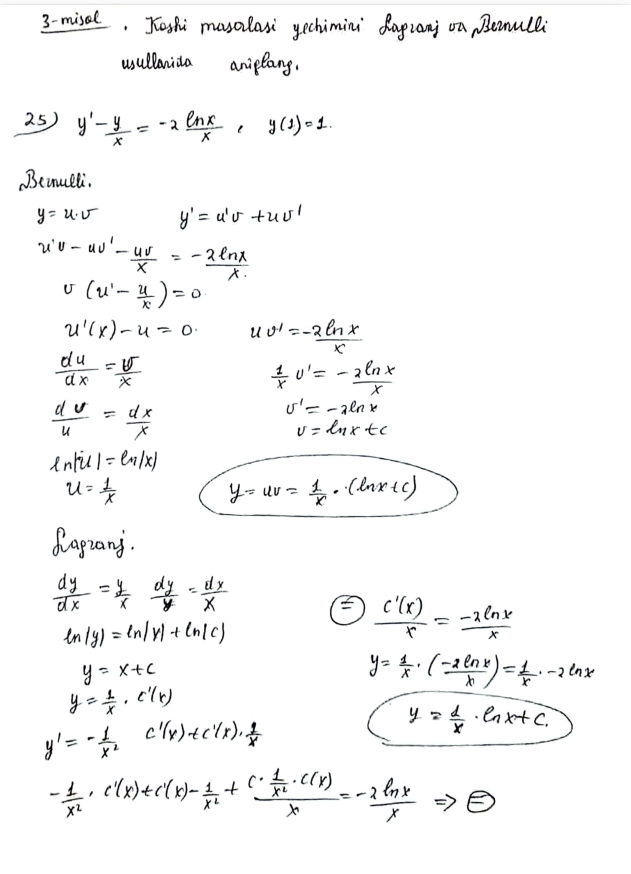 3-misol. Koshi masalasi yechimini Lagranj va Bernulli
usullarida aniqlang.
25) y' - y/x = -2 lnx/x, y(1)=1.
Bernulli.
y = u·v y' = u'v + uv'
u'v - uv' - uv/x = -2lnx/x.
v (u' - u/x) = 0.
u'(x) - u = 0.
du/dx = v/x
dv/u = dx/x
ln|u| = ln|x|
u = 1/x
uv' = -2lnx/x
1/x v' = -2lnx/x
v' = -2lnx
v = lnx + c
y = uv = 1/x · (lnx+c)
Lagranj.
dy/dx = y/x dy/y = dx/x
ln|y| = ln|x| + ln|c|
y = x+c
y = 1/x · c'(x)
y' = -1/x² c'(x)+c'(x)·1/x
-1/x² · c'(x)+c'(x) - 1/x² + (c·1/x²·c(x))/x = -2lnx/x ⇒ ⊜
⊜ c'(x)/x = -2lnx/x
y = 1/x · (-2lnx/x) = 1/x · -2lnx
y = 1/x · lnx+c.